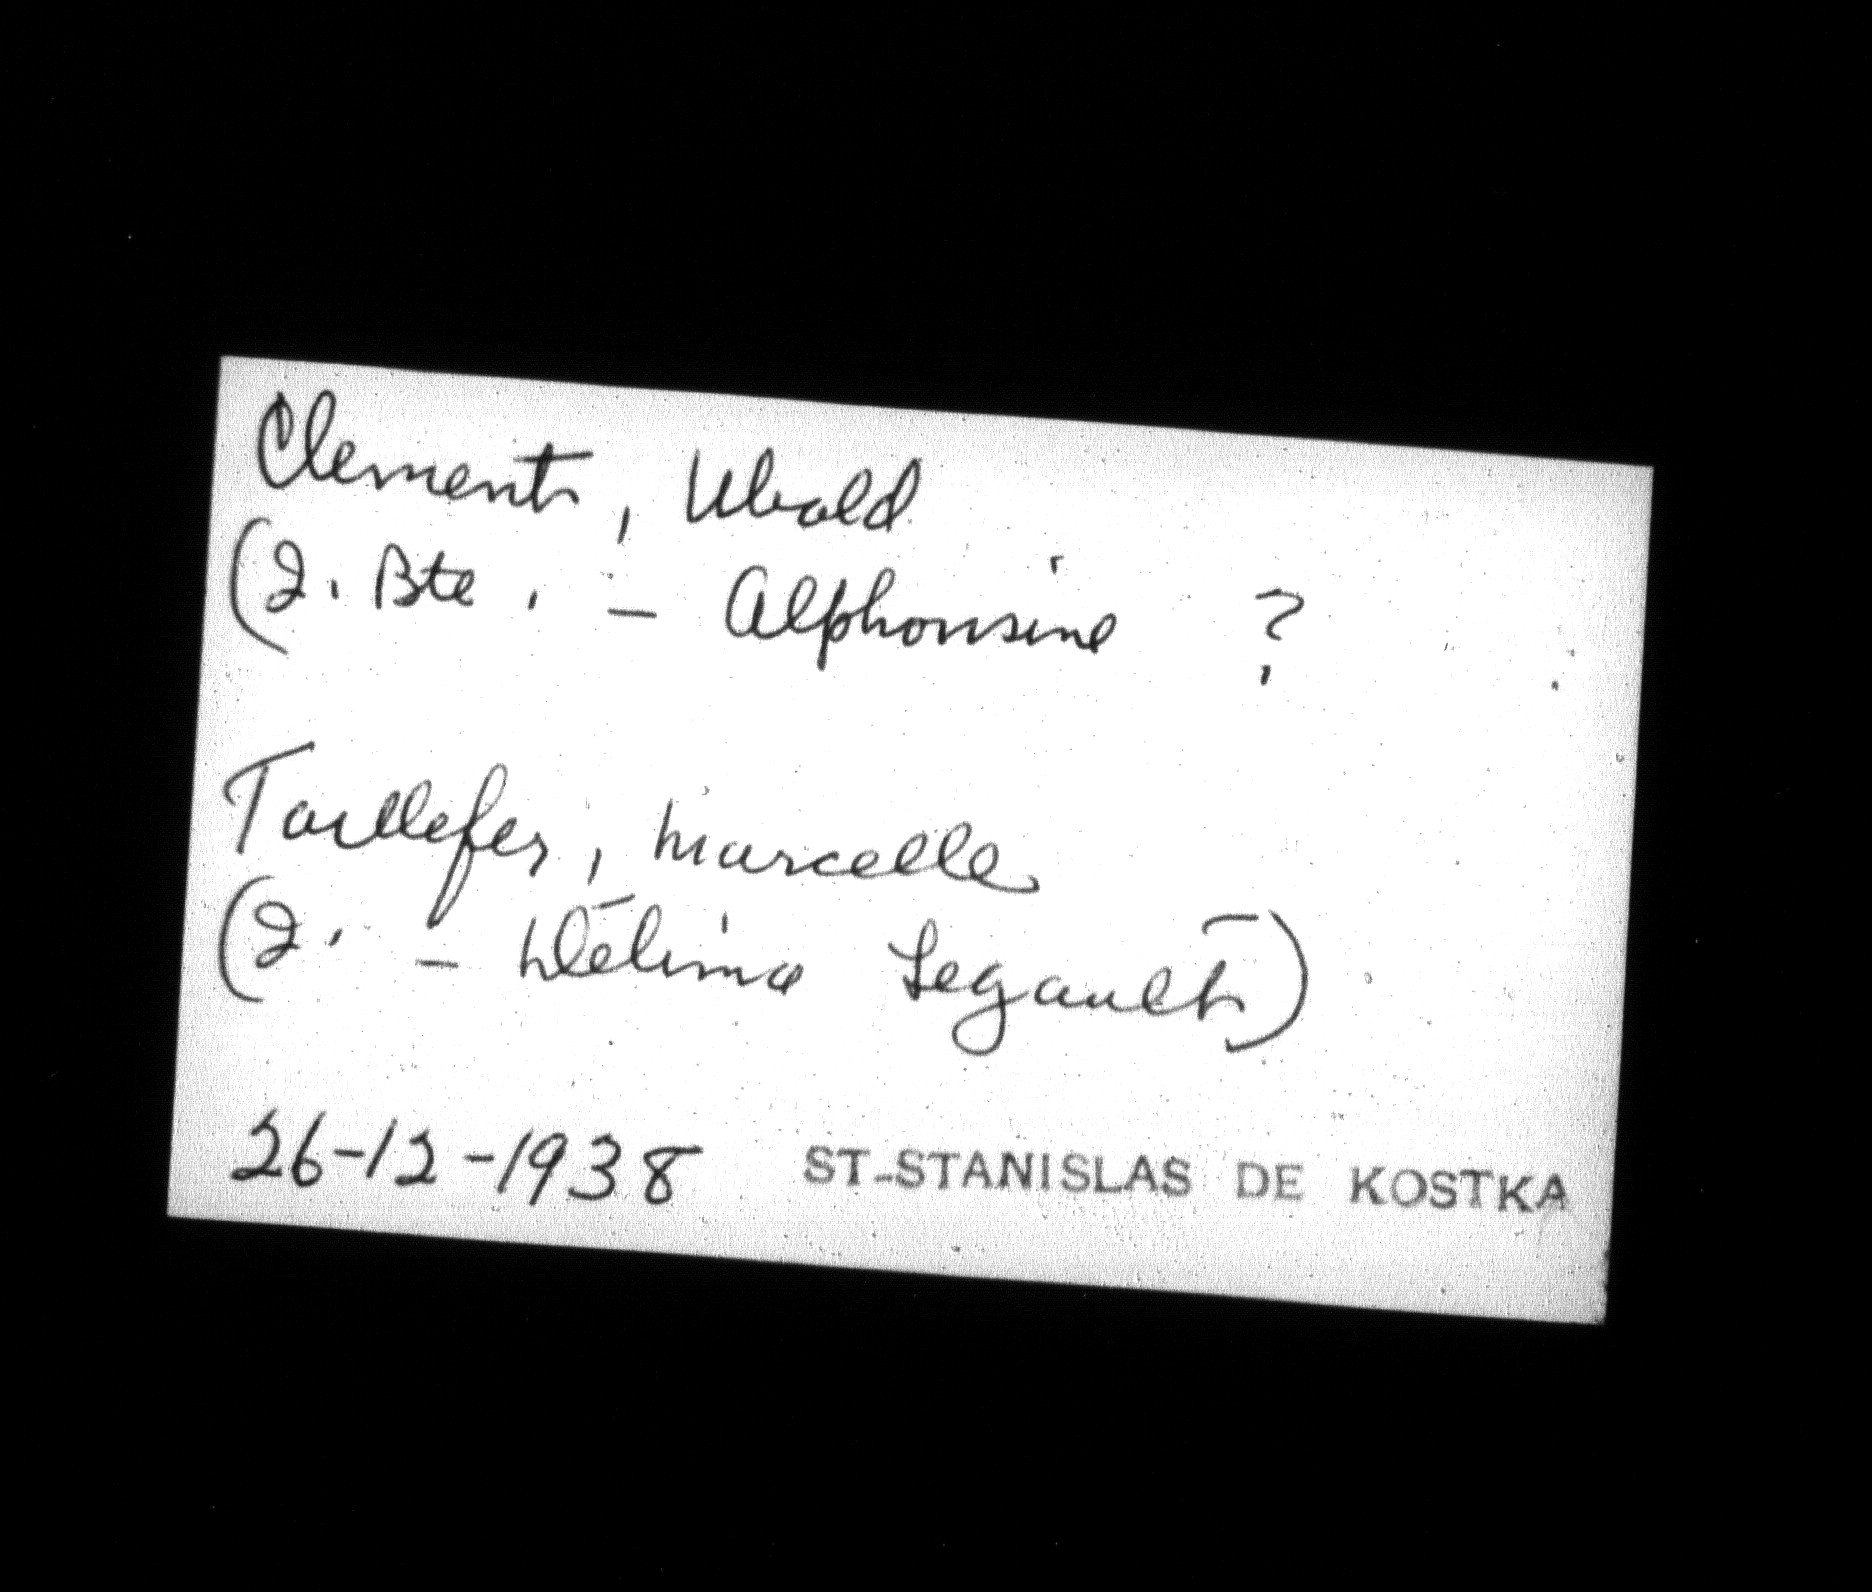 Clement, Ubald
(J. Bte. - Alphonsine ?
Taillefer, Marcelle
(J. - Délima Legault)
26-12-1938 ST-STANISLAS DE KOSTKA